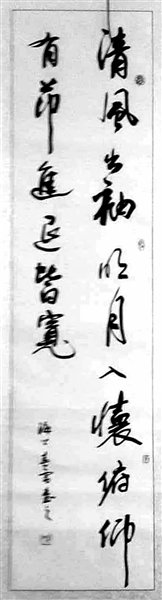 清風出袖明月入懷俯仰
有節進退皆寬